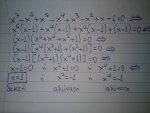 x⁷-x⁶+x⁵-x⁴+x³-x²+x-1=0 ⇔
x⁶(x-1)+x⁴(x-1)+x²(x-1)+(x-1)=0 ⇔
(x-1)(x⁶+x⁴+x²+1)=0 ⇔
(x-1)[x⁴(x²+1)+(x²+1)]=0 ⇔
(x-1)(x²+1)(x⁴+1)=0 ⇔
x-1=0 ή x²+1=0 ή x⁴+1=0 ⇔
x=1 x²=-1 x⁴=-1
δεκτή αδύνατη αδύνατη